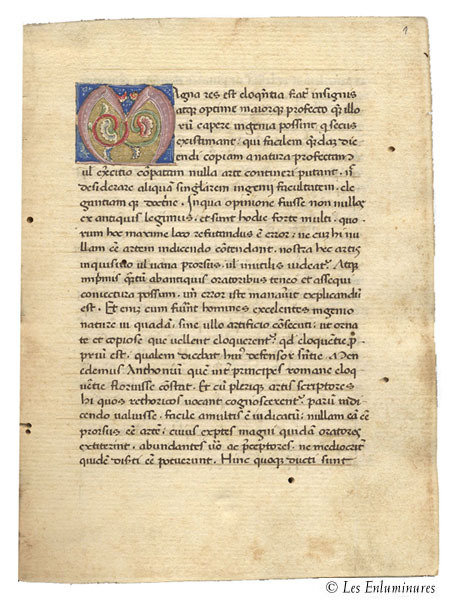 1
Magna res est eloqntia frat insignis
atque optime maiorq profecto q illo
rũ capere ingenia possint q secus
existimant: qui facilem qdaz dic
endi copiam a natura profectam
ul exercitio copatam nulla arte contineri putant
desiderare aliquã singlarem ingenii facultatem, ele
gantiam q doctne. Inqua opinione fuisse non nullos
ex antiquis legimus, et sunt hodie forte multi, quo
rum hoc maxime loco refutandus ẽ error, ne cur hi nu
llam ẽe artem indicendo cõtendant, nostra hec artis
inquisitio ul uana prorsus, ul inutilis uideat. Atq
abantiquis oratoribus teneo et assequi
coniectura possum, un error iste manauit explicandũ
est. Et enĩ cum fuint homines excelentes ingenio
nature ui quadã, sine ullo artificio cõsecuti, ut ornã
te et copiose que uellent eloquerent, qd eloquẽtie p
priũ est, qualem dicebat defensor Men
edemus Anthoniũ, quẽ int principes romane eloq
uẽtie floruisse cõstat. Et cũ pleriq artis scriptores
hi quos rethoricos uocant cognoscerent parũ indi
cendo ualuisse, facile amultis ẽ indicatũ, nullam eã ẽe
prorsus ẽe artẽ, cuius exptes magni quidã oratores
extiterint, abundantes uõ ac pceptores, ne mediocrit
quidẽ diserti ẽe potuerunt. Hinc quoq ducti sunt
© Les Enluminures